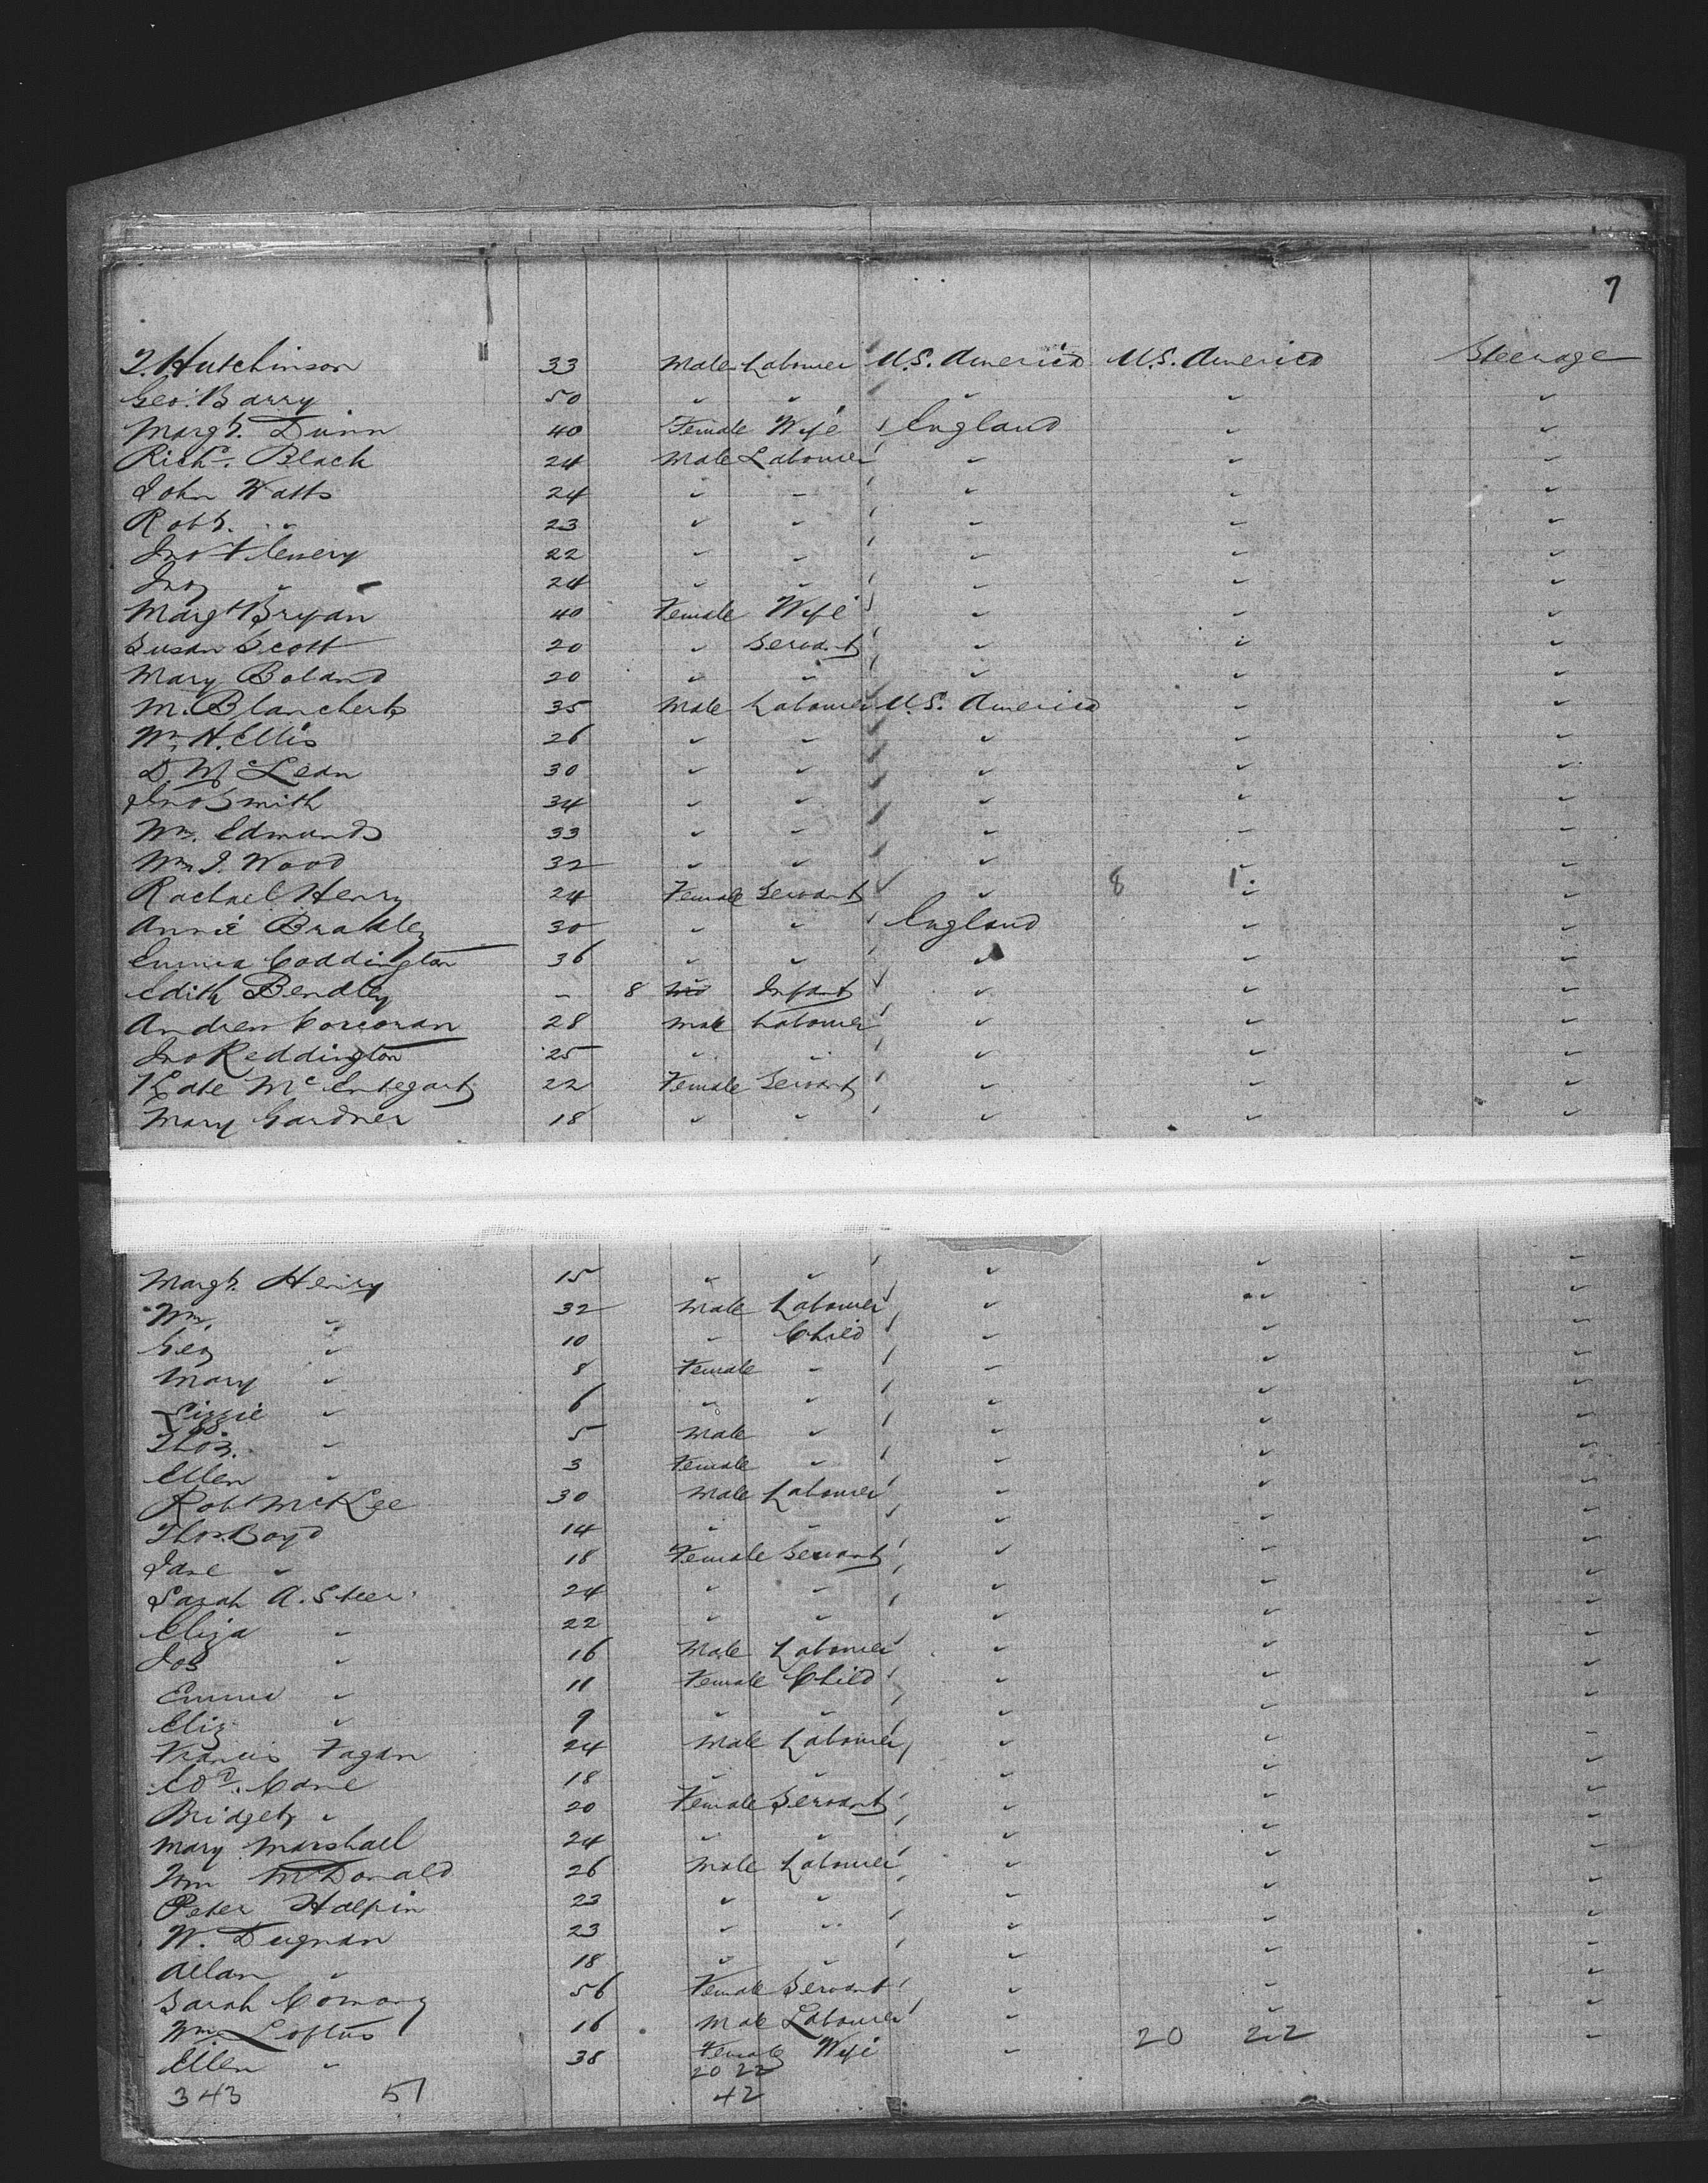 7
T. Hutchinson 33 Male Labourer U.S. America U.S. America Steerage
Geo. Barry 50 " " " " "
Margt. Dunn 40 Female Wife England " "
Richd. Black 24 Male Labourer " " "
John Watts 24 " " " " "
Robt. " 23 " " " " "
Jno Flemery 22 " " " " "
Jno " 24 " " " " "
Margt Bryan 40 Female Wife " " "
Susan Scott 20 " Servant " " "
Mary Boland 20 " " " " "
M. Blanchert 35 Male Labourer U.S. America " "
Wm. H. Ellis 26 " " " " "
D. McLean 30 " " " " "
Jno Smith 34 " " " " "
Wm. Edmunds 33 " " " " "
Wm. J. Wood 32 " " " " "
Rachael Henry 24 Female Servant " 8 1 " "
Annie Bradley 30 " " England " "
Emma Coddington 36 " " " " "
Edith Bendley – 8 " Infant " " "
Andrew Corcoran 28 Male Labourer " " "
Jno Reddington 25 " " " " "
Kate McEntegart 22 Female Servant " " "
Mary Gardner 18 " " " " "
Margt. Henry 15 " " " " "
Wm. " 32 Male Labourer " " "
Geo " 10 " Child " " "
Mary " 8 Female " " " "
Lizzie " 6 " " " " "
Thos. " 5 Male " " " "
Ellen " 3 Female " " " "
Robt McKee 30 Male Labourer " " "
Thos. Boyd 14 " " " " "
Jane " 18 Female Servant " " "
Sarah A. Steer 24 " " " " "
Eliza " 22 " " " " "
Jos " 16 Male Labourer " " "
Emma " 11 Female Child " " "
Eliz " 9 " " " " "
Francis Fagan 24 Male Labourer " " "
Edd. Cane 18 " " " " "
Bridget " 20 Female Servant " " "
Mary Marshall 24 " " " " "
Wm McDonald 26 Male Labourer " " "
Peter Halpin 23 " " " " "
W. Dugnan 23 " " " " "
Allan " 18 " " " " "
Sarah 56 Female Servant " " "
Wm. Loftus 16 Male Labourer " " "
Ellen " 38 Female Wife " 20 22 "
20 22
343 51 42